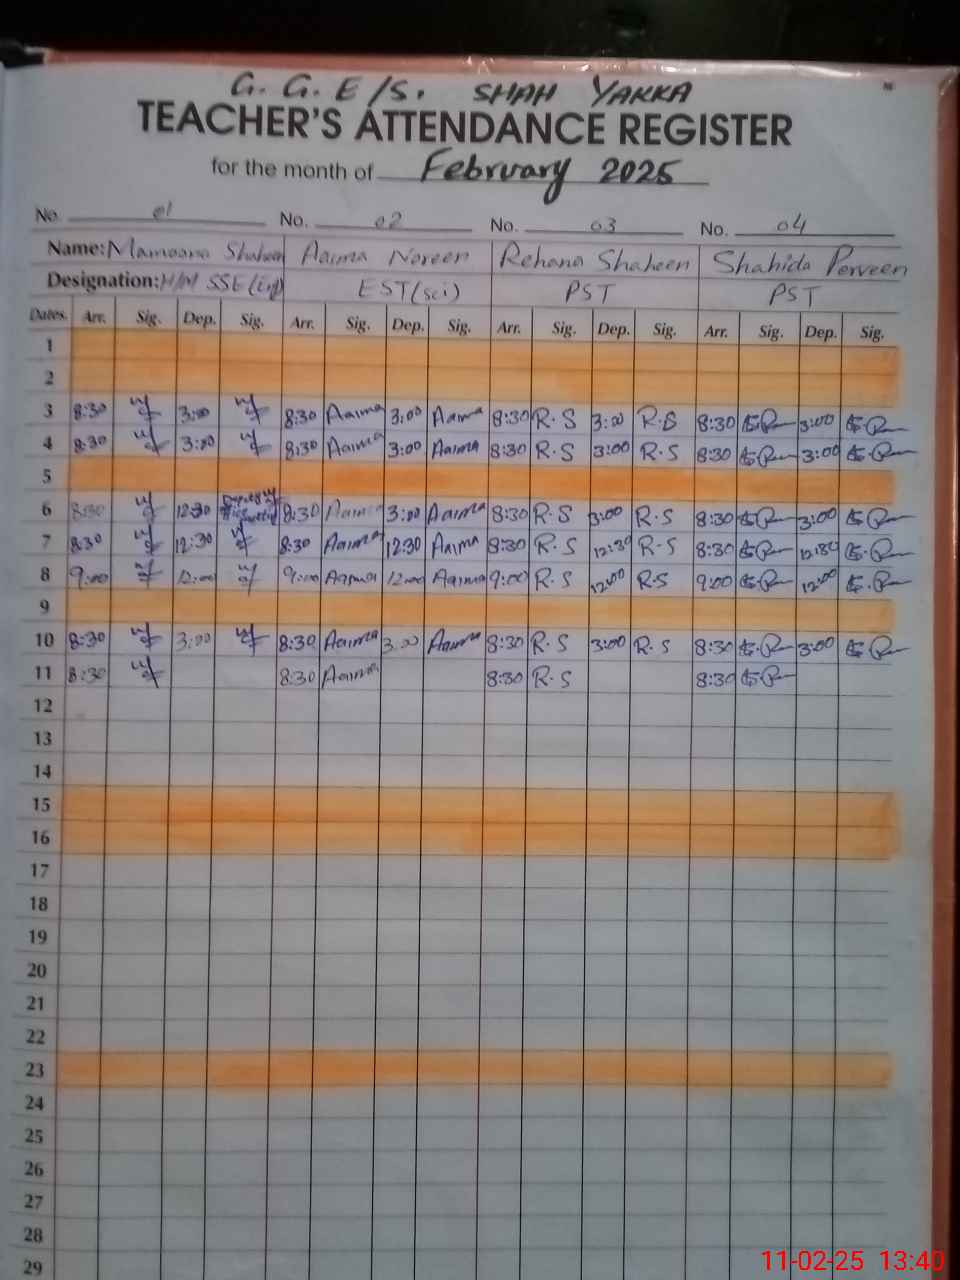 G. G. E/S. SHAH YAKKA
TEACHER'S ATTENDANCE REGISTER
for the month of February 2025
No. 01 No. 02 No. 03 No. 04
Name: Mamoona Shaheen Aaima Noreen Rehana Shaheen Shahida Perveen
Designation: H/M SSE (Eng) EST (sci) PST PST
Dates. Arr. Sig. Dep. Sig. Arr. Sig. Dep. Sig. Arr. Sig. Dep. Sig. Arr. Sig. Dep. Sig.
1
2
3 8:30 3:00 8:30 Aaima 3:00 Aaima 8:30 R.S 3:00 R.S 8:30 3:00
4 8:30 3:00 8:30 Aaima 3:00 Aaima 8:30 R.S 3:00 R.S 8:30 3:00
5
6 8:30 12:30 8:30 Aaima 3:00 Aaima 8:30 R.S 3:00 R.S 8:30 3:00
7 8:30 12:30 8:30 Aaima 12:30 Aaima 8:30 R.S 12:30 R.S 8:30 12:30
8 9:00 12:00 9:00 Aaima 12:00 Aaima 9:00 R.S 12:00 R.S 9:00 12:00
9
10 8:30 3:00 8:30 Aaima 3:00 Aaima 8:30 R.S 3:00 R.S 8:30 3:00
11 8:30 8:30 Aaima 8:30 R.S 8:30
12
13
14
15
16
17
18
19
20
21
22
23
24
25
26
27
28
29
11-02-25 13:40